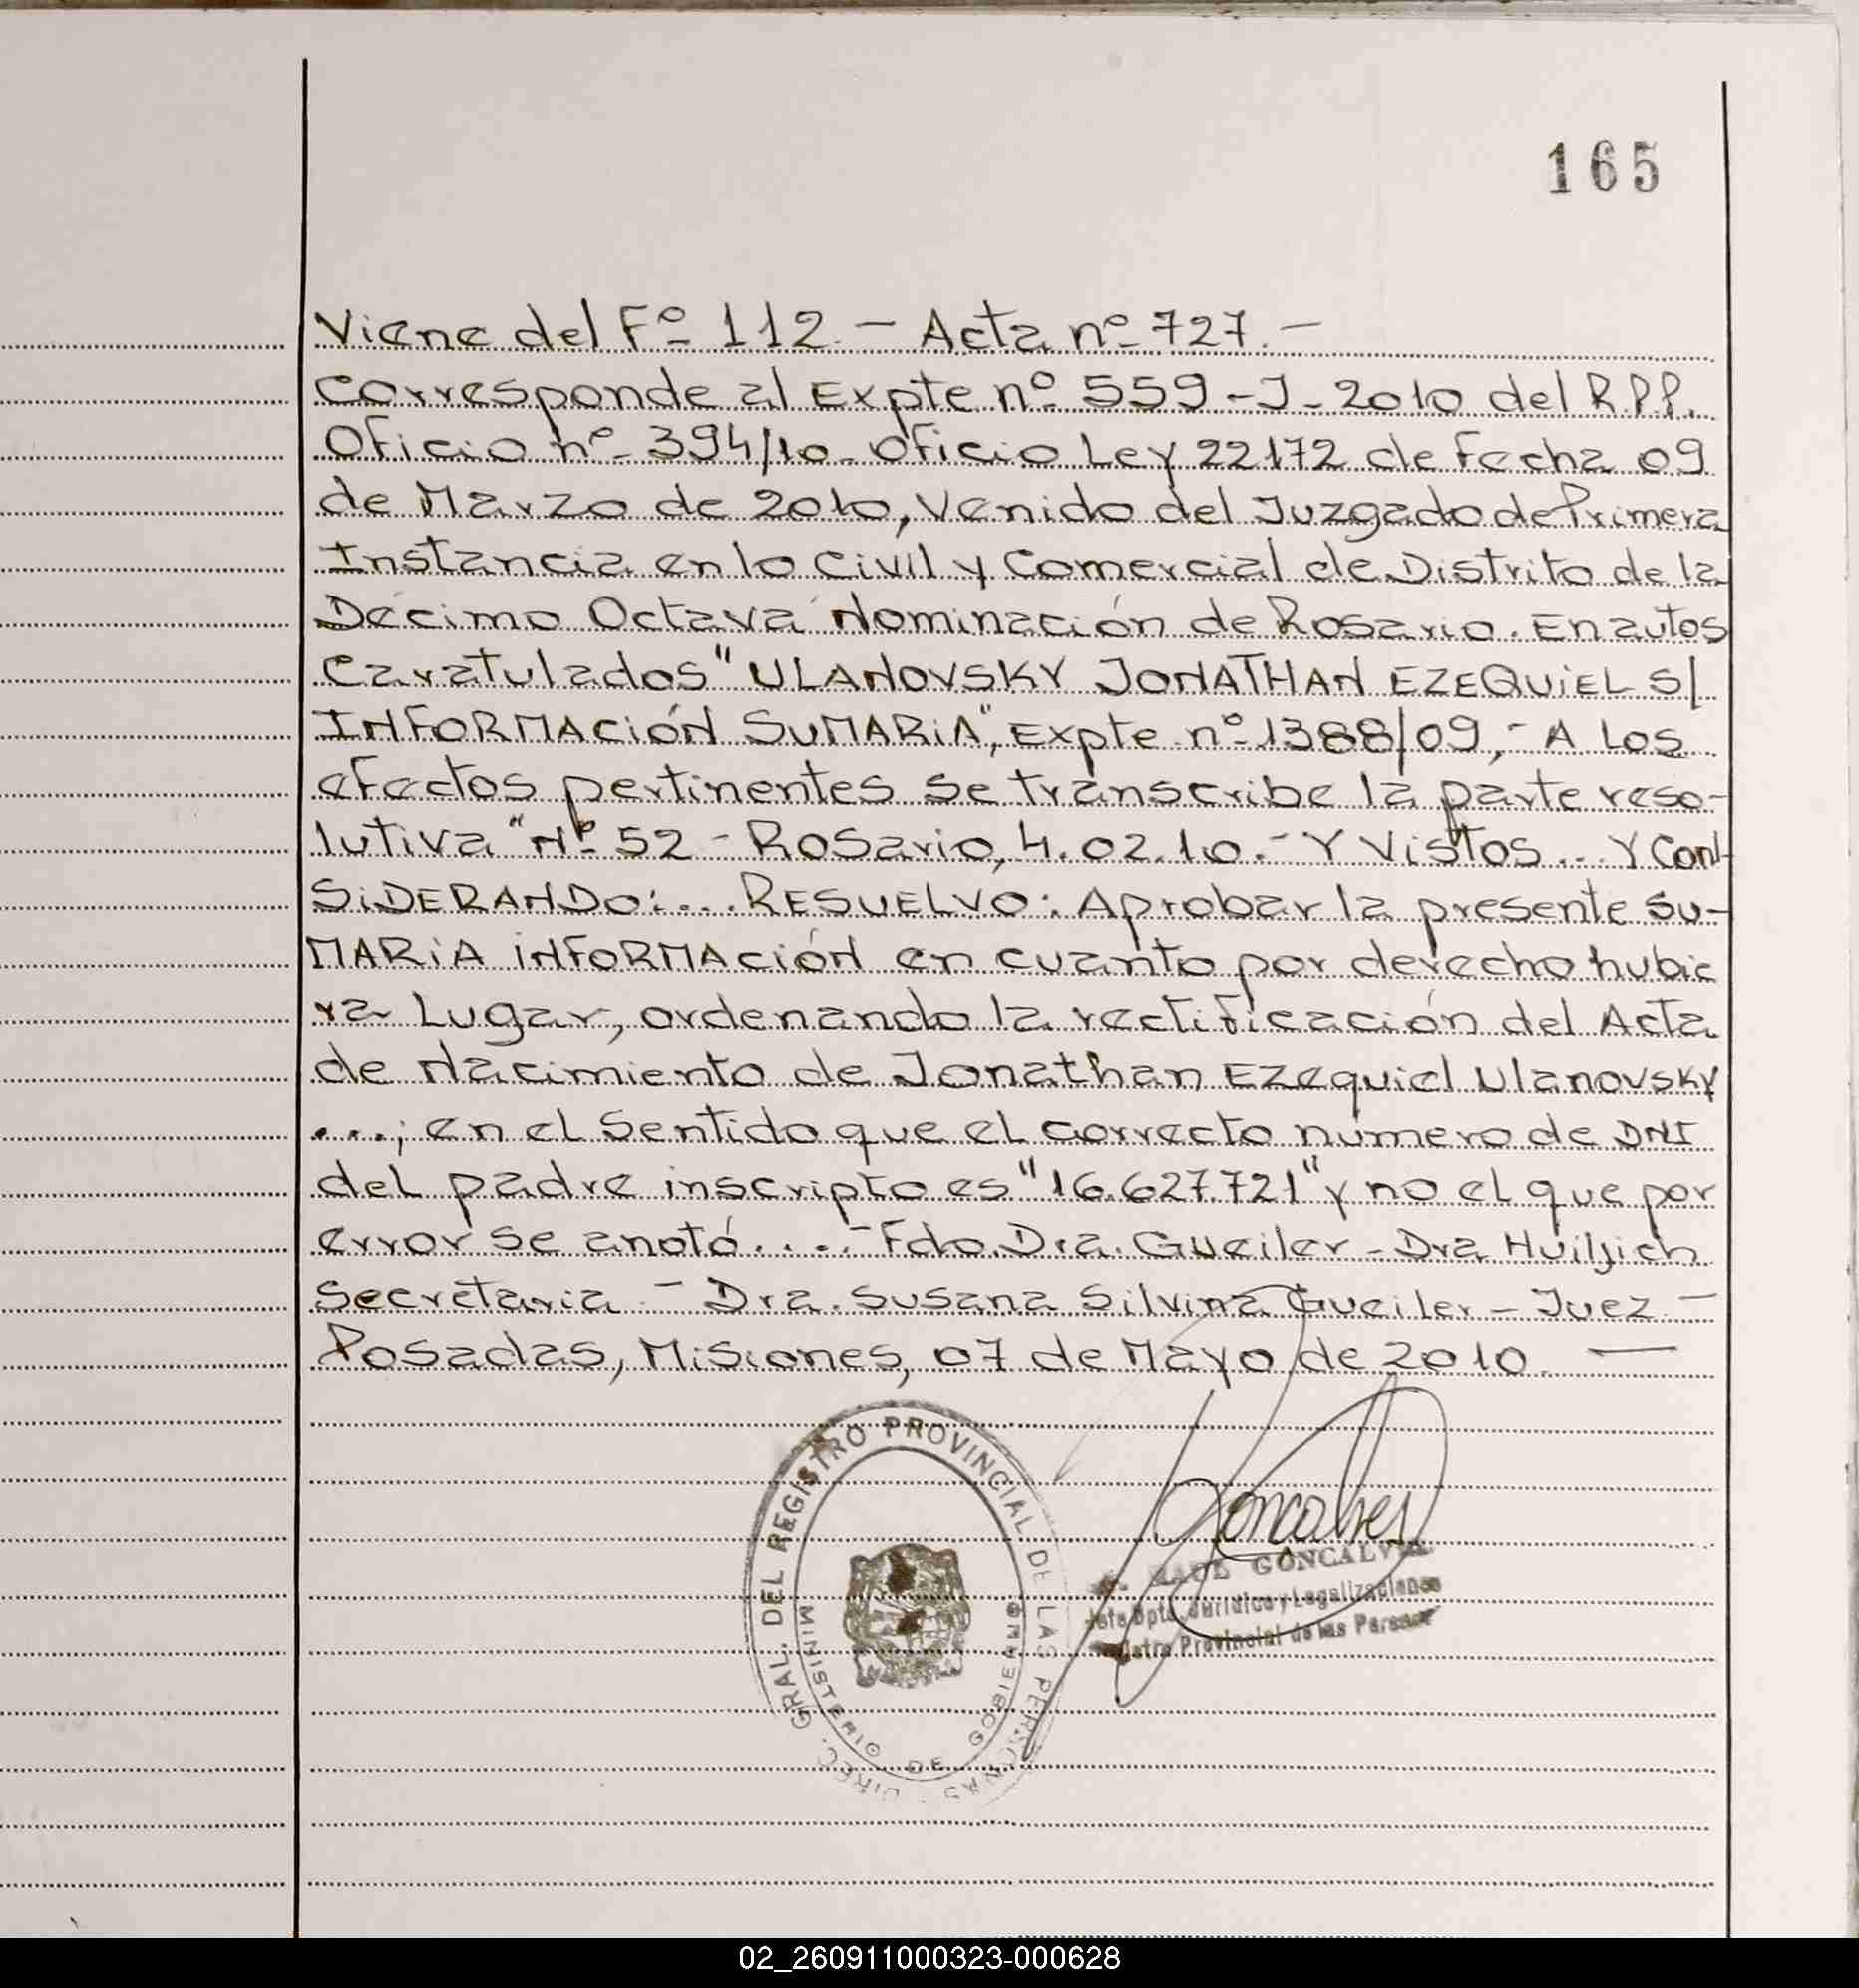 165
Viene del Fº 112.- Acta nº 727.-
Corresponde al Expte nº 559-J-2010 del R.P.P.
Oficio nº 394/10- Oficio Ley 22172 de Fecha 09
de Marzo de 2010, Venido del Juzgado de Primera
Instancia en lo Civil y Comercial de Distrito de la
Décimo Octava Nominación de Rosario. En autos
Caratulados "ULANOVSKY JONATHAN EZEQUIEL S/
INFORMACIÓN SUMARIA", Expte nº 1388/09,- A Los
efectos pertinentes se transcribe la parte reso-
lutiva "Nº 52 - Rosario, 4.02.10.- Y Vistos... Y Con-
SIDERANDO:... RESUELVO: Aprobar la presente SU-
MARIA INFORMACIÓN en cuanto por derecho hubie
ra Lugar, ordenando la rectificación del Acta
de Nacimiento de Jonathan Ezequiel Ulanovsky
...; en el Sentido que el correcto número de DNI
del padre inscripto es "16.627.721" y no el que por
error se anotó....- Fdo. Dra. Gueiler - Dra Huiljich
Secretaria - Dra. Susana Silvina Gueiler - Juez.-
Posadas, Misiones, 07 de Mayo de 2010. —
DIREC. GRAL. DEL REGISTRO PROVINCIAL DE LAS PERSONAS
MINISTERIO DE GOBIERNO
Goncalves
RAUL GONCALVES
Jefe Dpto. Jurídico y Legalizaciones
Registro Provincial de las Personas
02_260911000323-000628